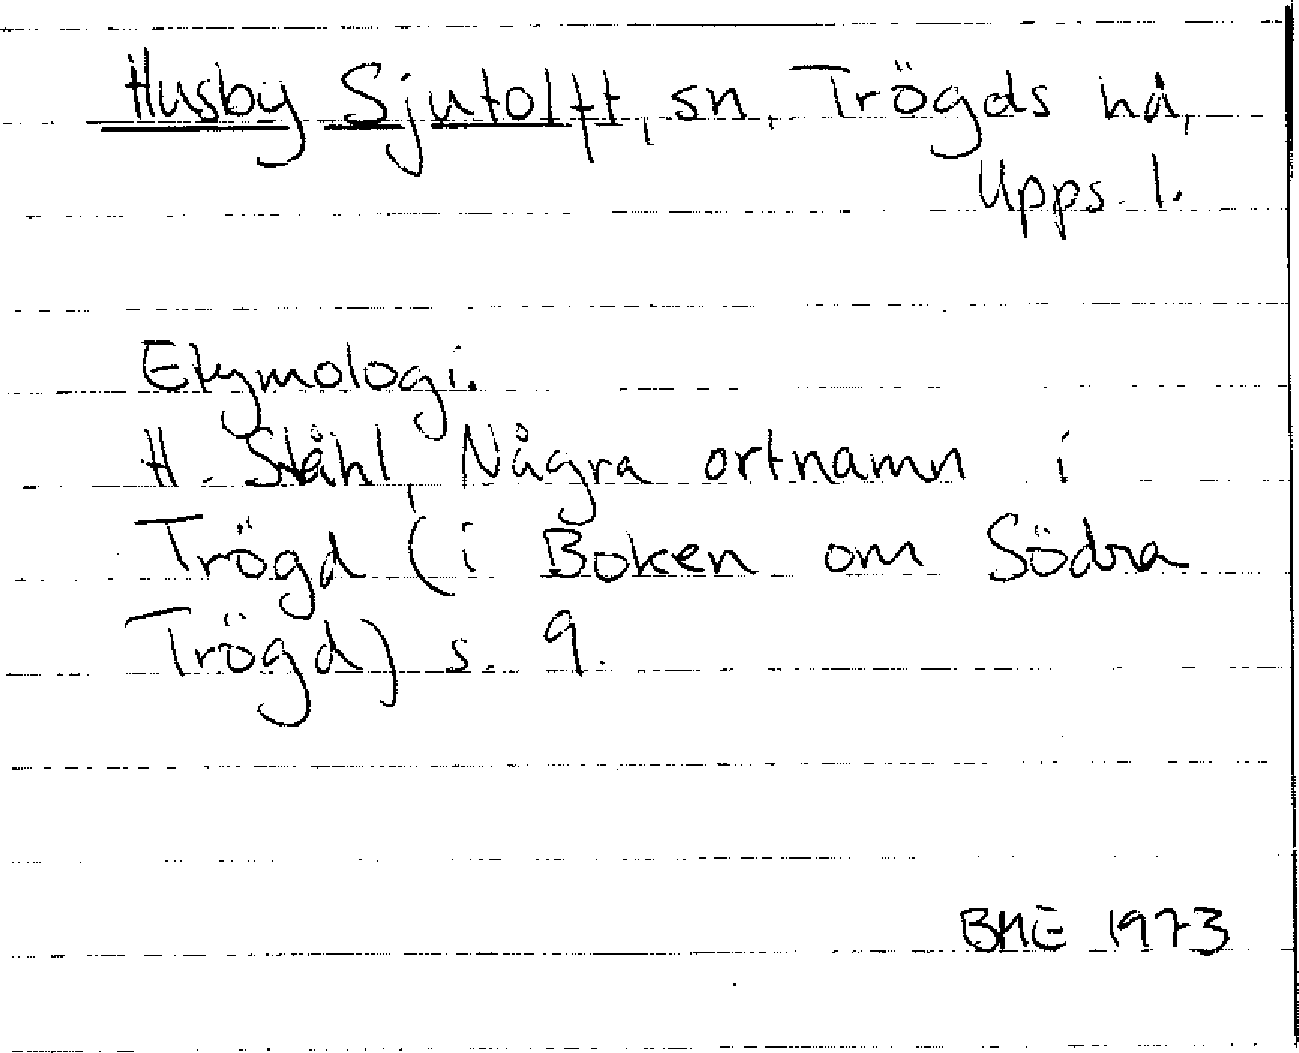 Husby Sjutolft, sn. Trögds hd,
Upps. l.
Etymologi.
H. Ståhl, Några ortnamn i
Trögd (i Boken om Södra
Trögd) s. 9.
BHE 1973